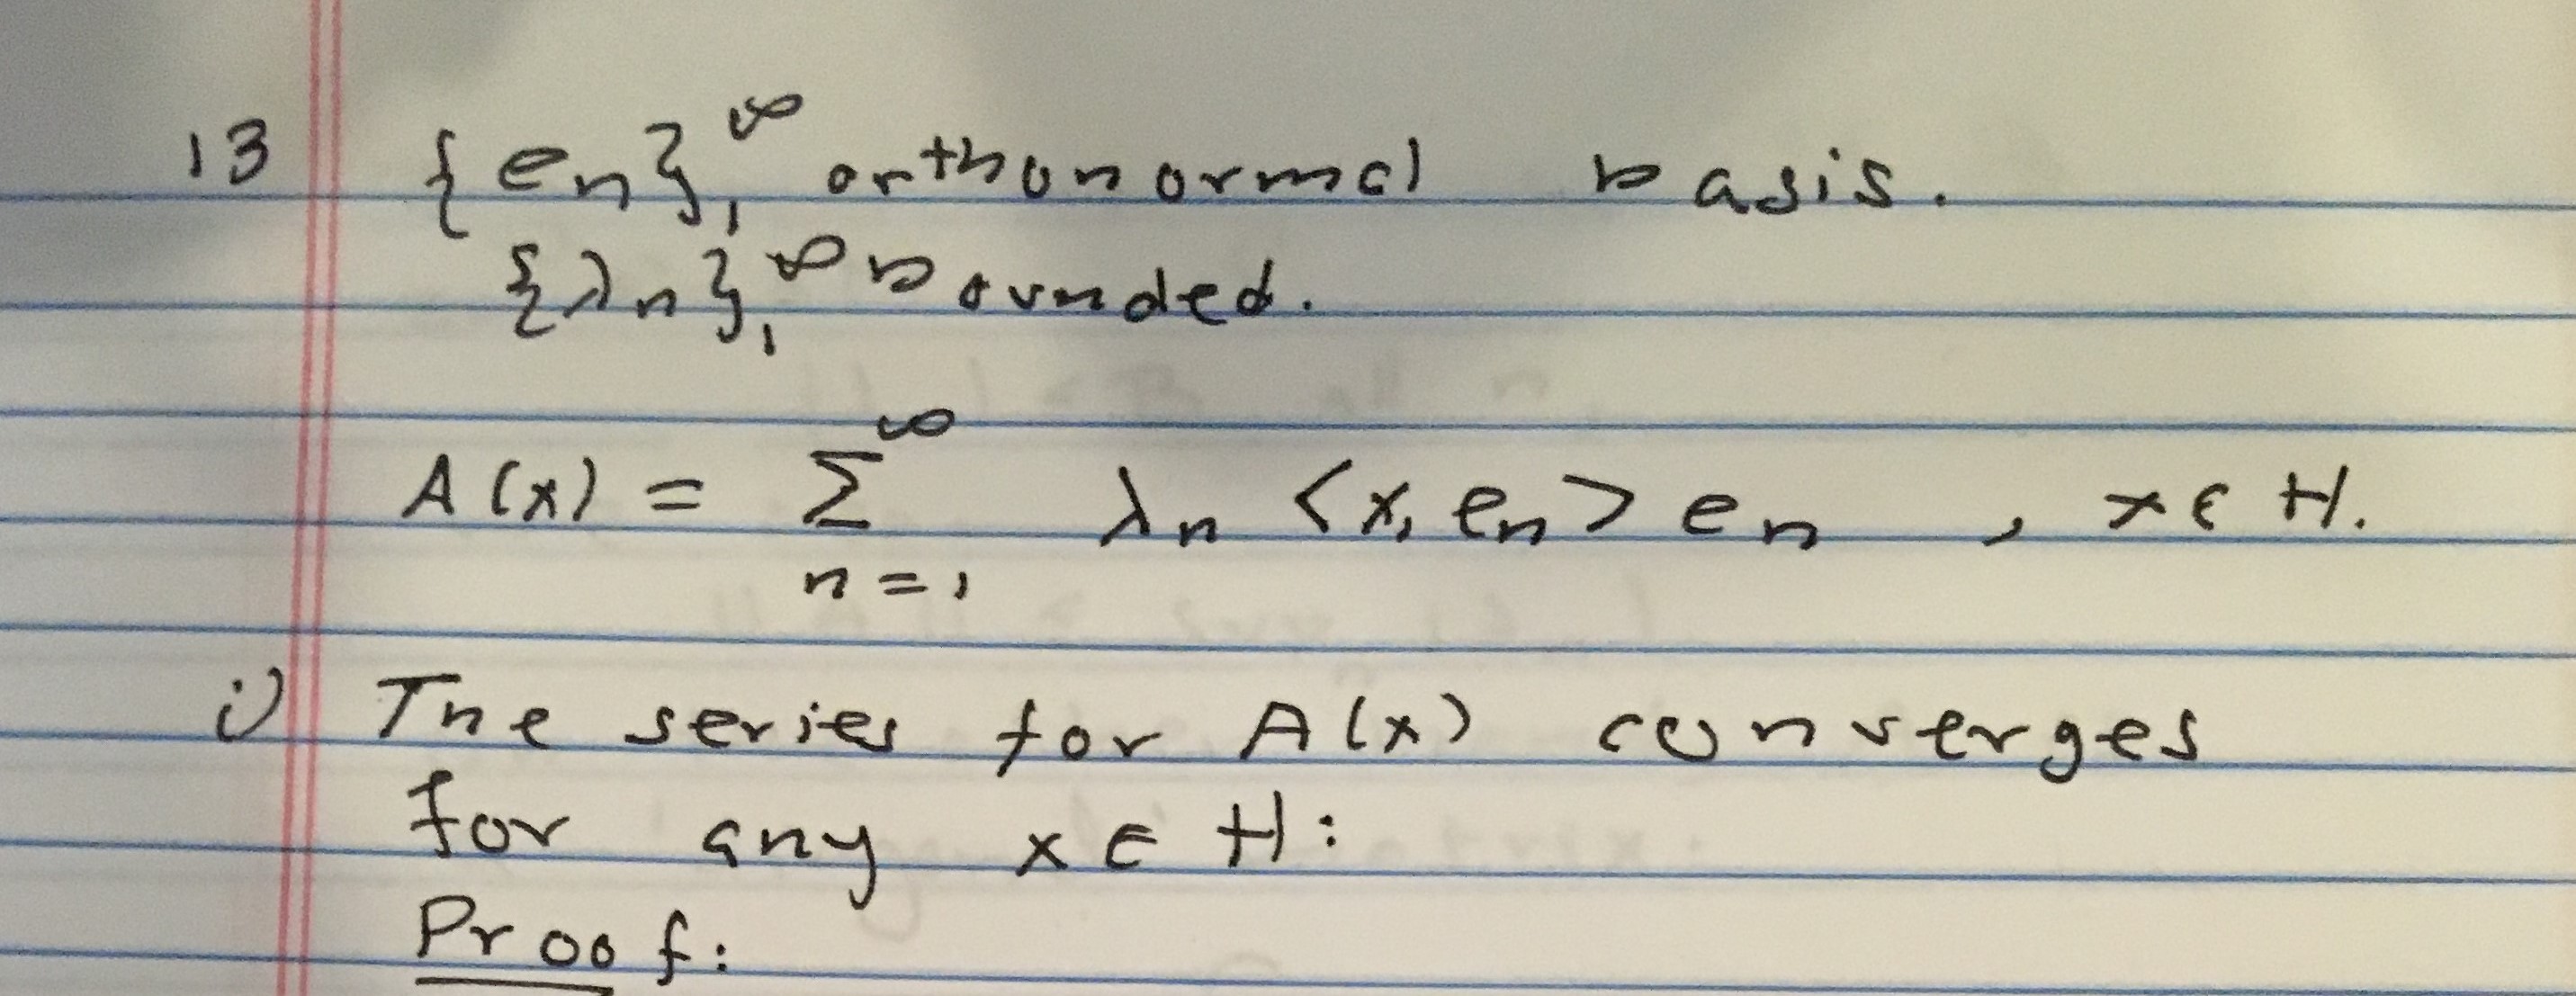 13 {en}₁^∞ orthonormal basis.
{λn}₁^∞ bounded.
A(x) = Σ_{n=1}^∞ λn <x, en> en , x ∈ H.
i) The series for A(x) converges
for any x ∈ H:
Proof: